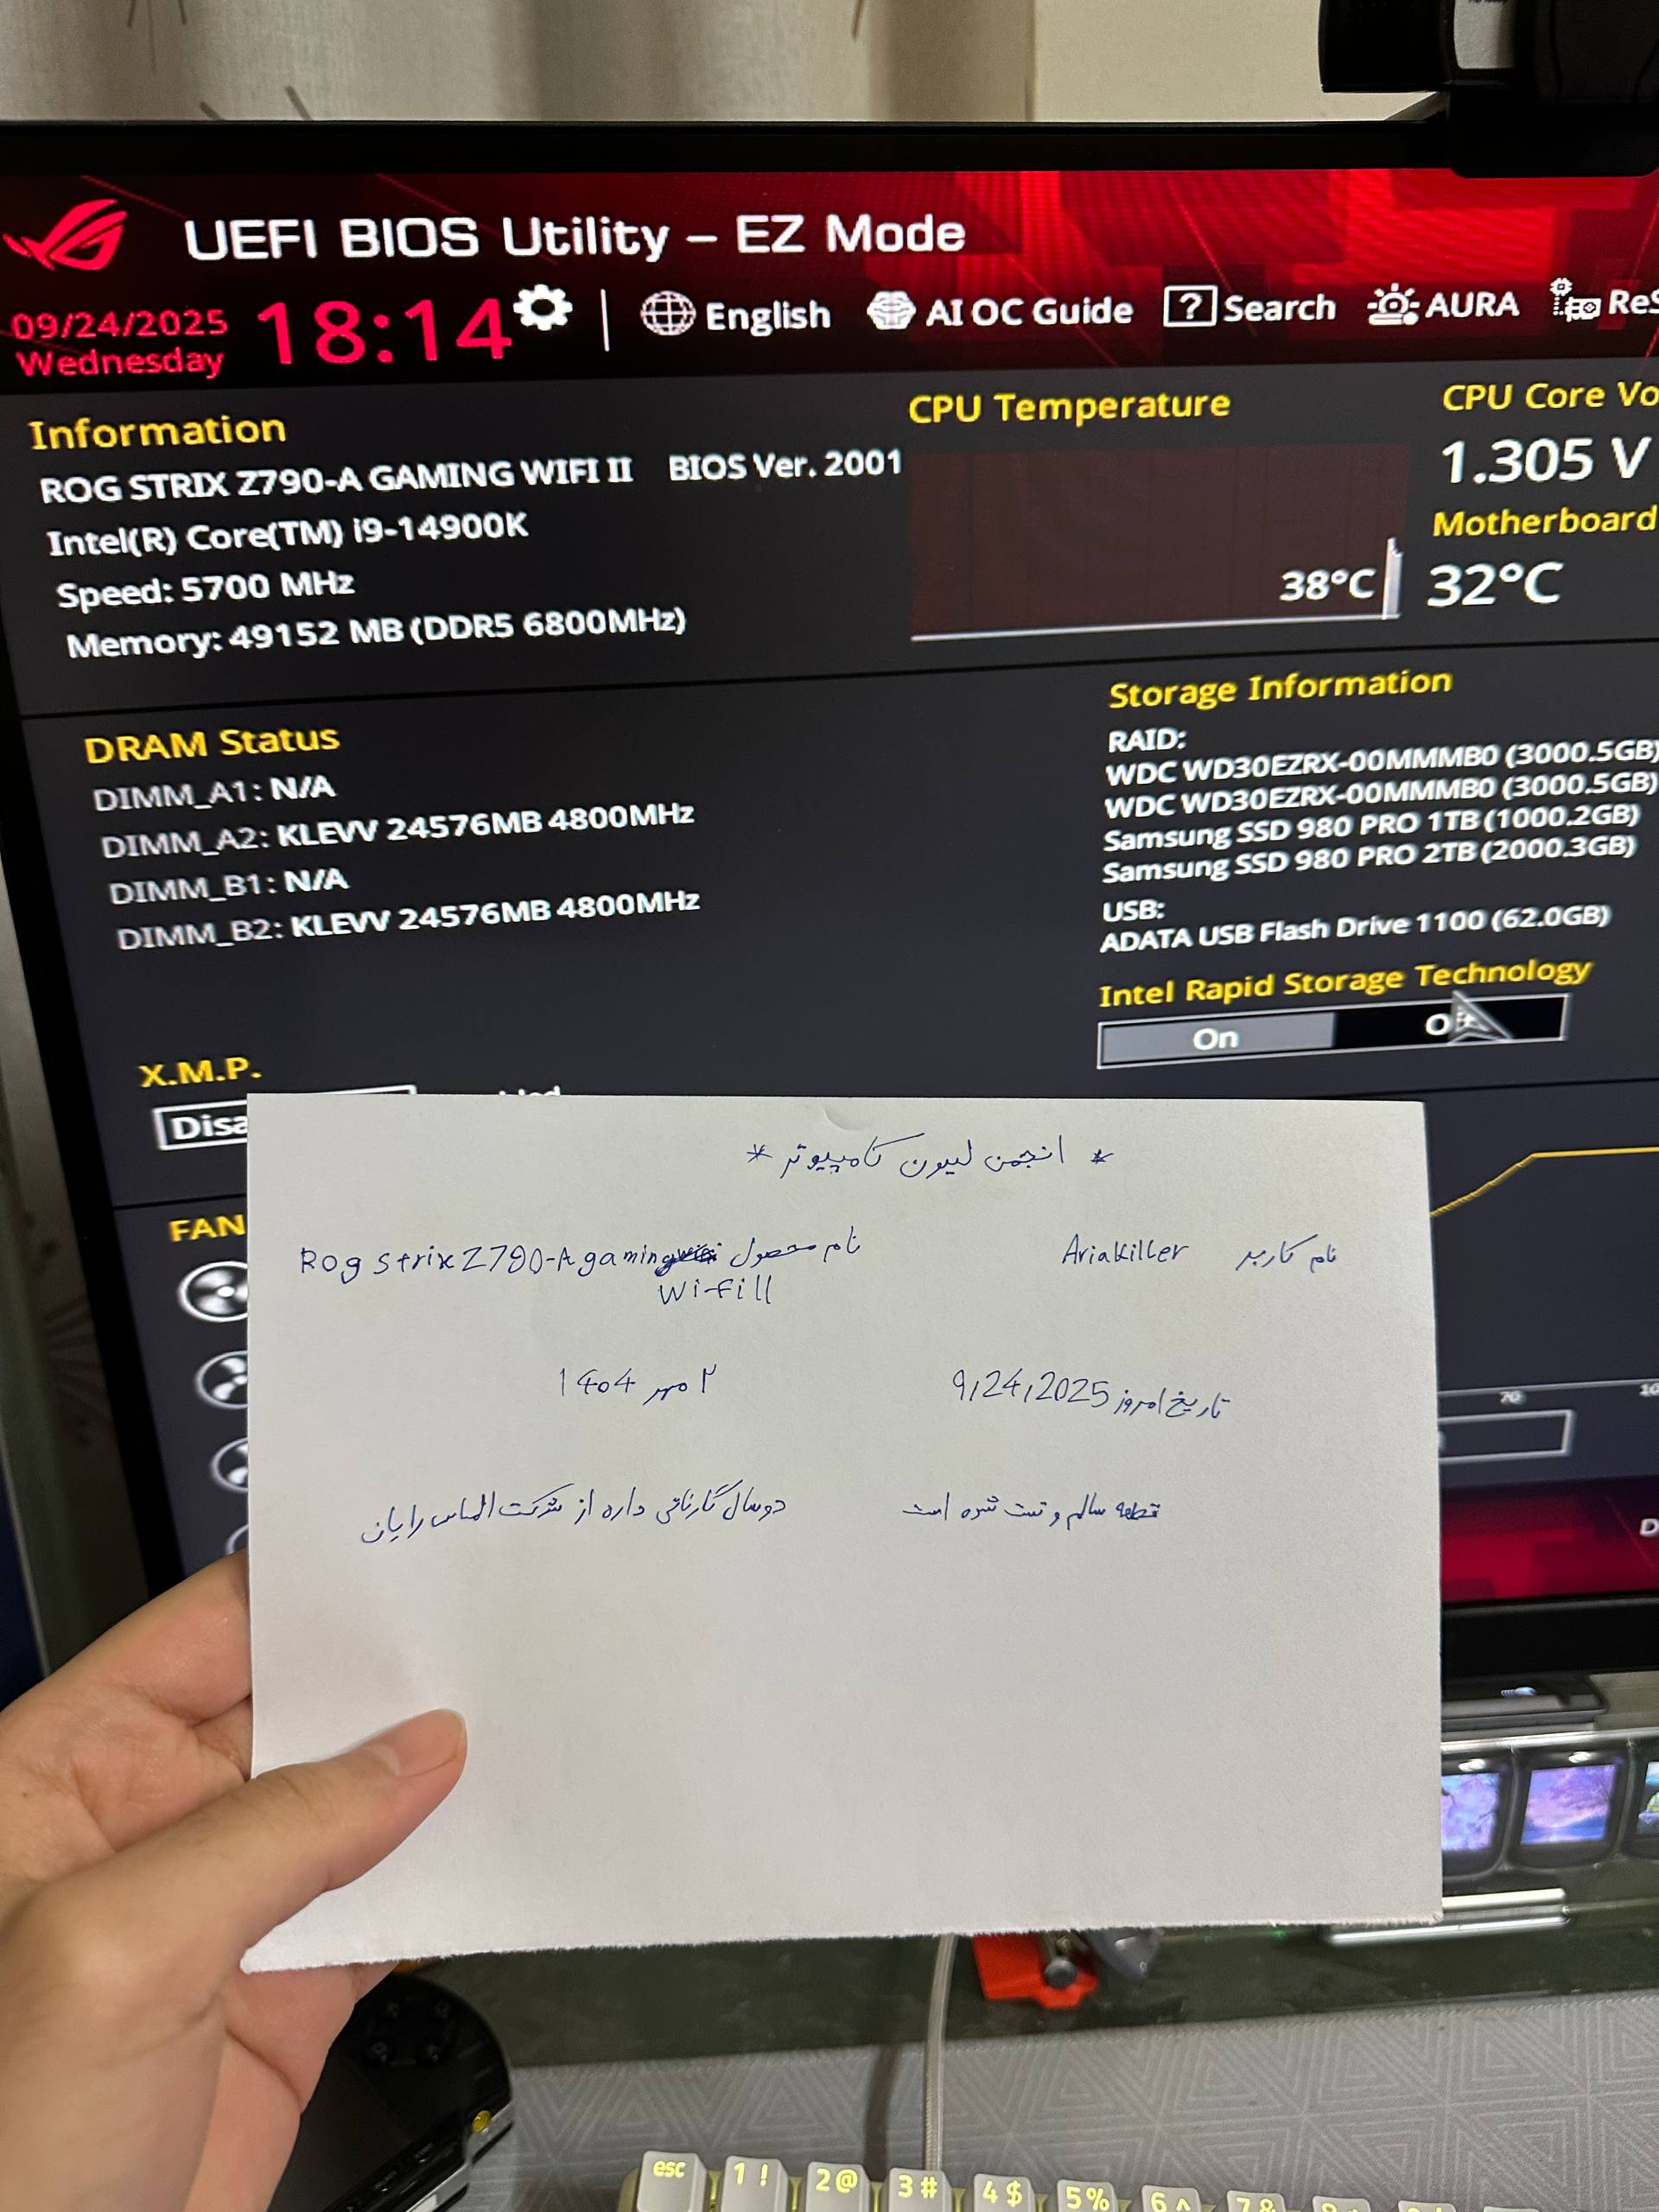 UEFI BIOS Utility – EZ Mode
09/24/2025
Wednesday
18:14
English
AI OC Guide
? Search
AURA
ReS
Information
ROG STRIX Z790-A GAMING WIFI II BIOS Ver. 2001
Intel(R) Core(TM) i9-14900K
Speed: 5700 MHz
Memory: 49152 MB (DDR5 6800MHz)
CPU Temperature
38°C
CPU Core Vo
1.305 V
Motherboard
32°C
DRAM Status
DIMM_A1: N/A
DIMM_A2: KLEVV 24576MB 4800MHz
DIMM_B1: N/A
DIMM_B2: KLEVV 24576MB 4800MHz
Storage Information
RAID:
WDC WD30EZRX-00MMMB0 (3000.5GB)
WDC WD30EZRX-00MMMB0 (3000.5GB)
Samsung SSD 980 PRO 1TB (1000.2GB)
Samsung SSD 980 PRO 2TB (2000.3GB)
USB:
ADATA USB Flash Drive 1100 (62.0GB)
Intel Rapid Storage Technology
On
X.M.P.
Disa
FAN
70
* انجمن لیون کامپیوتر *
نام کاربر AriaKiller
نام محصول Rog strix Z790-A gaming
Wi-fi II
تاریخ امروز 9,24,2025
۲ مهر 1404
قطعه سالم و تست شده است
دوسال گارنتی داره از شرکت الماس رایان
esc
1 !
2 @
3 #
4 $
5 %
6 ^
7 &